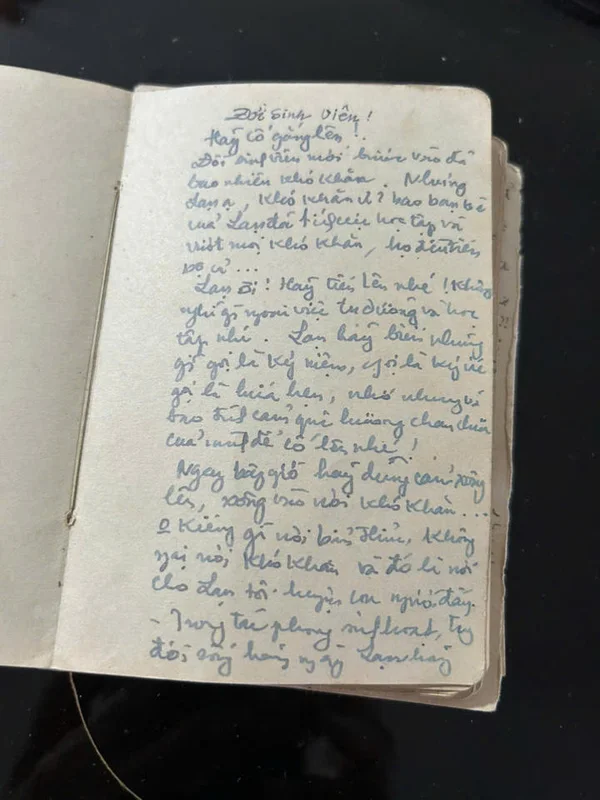 Đời sinh viên!
Hãy cố gắng lên!
Đời sinh viên mới bước vào đã
bao nhiêu khó khăn. Nhưng
Lan ạ, khó khăn ư? bao bạn bè
của Lan đã học tập và
vượt mọi khó khăn, họ đều tiến
bộ cả...
Lan ơi! Hãy tiến lên nhé! Không
nghĩ gì ngoài việc tu dưỡng và học
tập nhé. Lan hãy biến những
gì gọi là kỷ niệm, gọi là ký ức
gọi là hứa hẹn, nhớ nhung và
bao tình cảm quê hương chan chứa
của mình để cố lên nhé!
Ngay bây giờ hãy dũng cảm xông
lên, xông vào nơi khó khăn...
kiêng gì nơi bùn không
ngại nơi khó khăn và đó là nơi
cho Lan tôi luyện con người đấy.
- Trong tác phong sinh hoạt, trong
đời sống hàng ngày Lan hãy